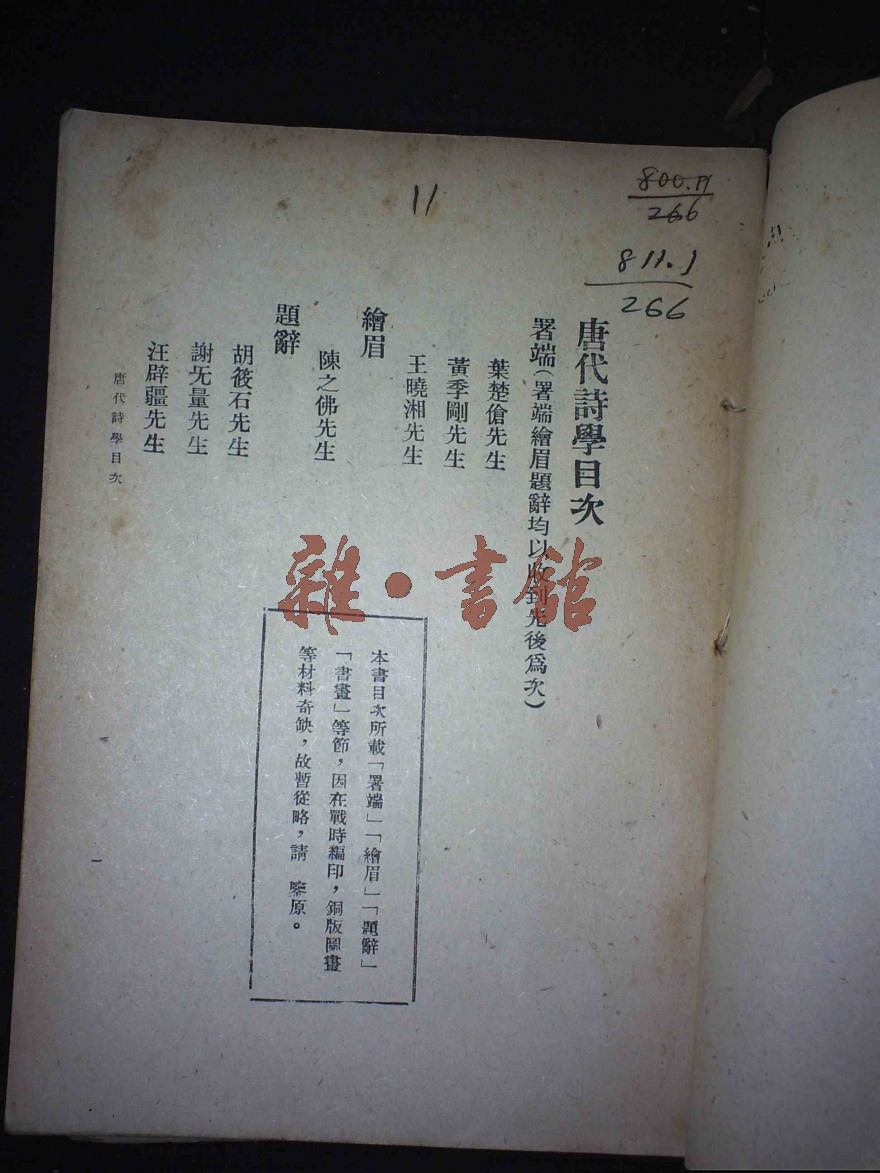 11
800.11
266
811.1
266
唐代詩學目次
署端(署端繪眉題辭均以收到先後爲次)
葉楚傖先生
黃季剛先生
王曉湘先生
繪眉
陳之佛先生
題辭
胡筱石先生
謝无量先生
汪辟疆先生
唐代詩學目次
一
本書目次所載「署端」「繪眉」「題辭」
「書畫」等節,因在戰時編印,銅版圖畫
等材料奇缺,故暫從略,請 鑒原。
雜·書館